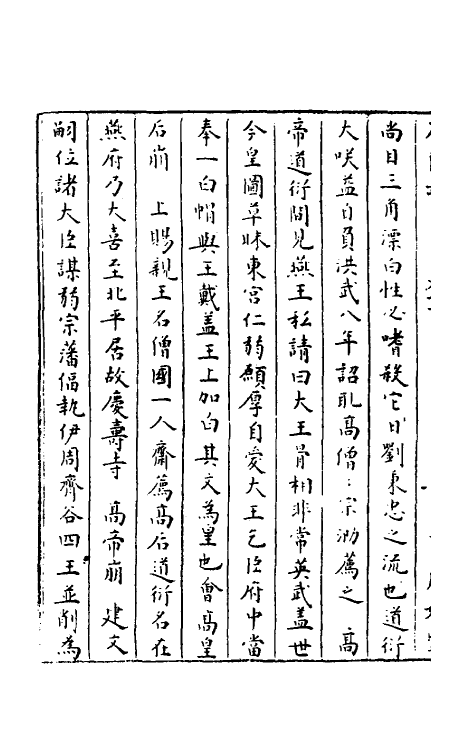 尚目三角漂白性必嗜殺它日劉秉忠之流也道衍
大咲益自負洪武八年詔取高僧〻宗泐薦之　高
帝道衍間見燕王私請曰大王骨相非常英武盖世
今皇圖草昧東宮仁弱願厚自愛大王乞臣府中當
奉一白帽與王戴盖王上加白其文為皇也會高皇
后崩　上賜親王名僧國一人齋薦高后道衍名在
燕府乃大喜至北平居故慶壽寺　高帝崩　建文
嗣位諸大臣謀弱宗藩偪執伊周齊谷四王並削為